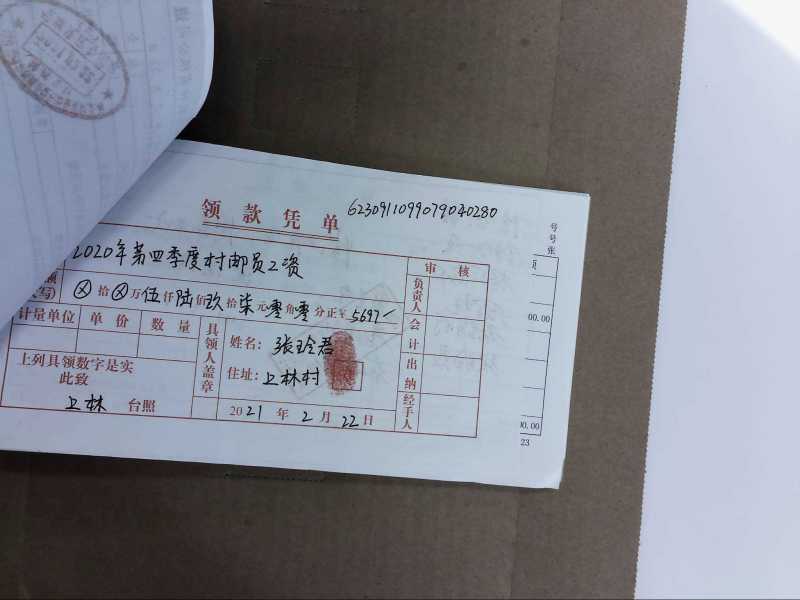 领款凭单 6230911099079040280
2020年第四季度村邮员工资
额
写) ⊗拾⊗万伍仟陆佰玖拾柒元零角零分正¥5697-
计量单位 单价 数量
上列具领数字是实
此致
上林 台照
具领人盖章
姓名: 张玲君
住址: 上林村
2021年2月22日
审核
负责人
会计
出纳
经手人
号
号
张
00.00
00.00
23